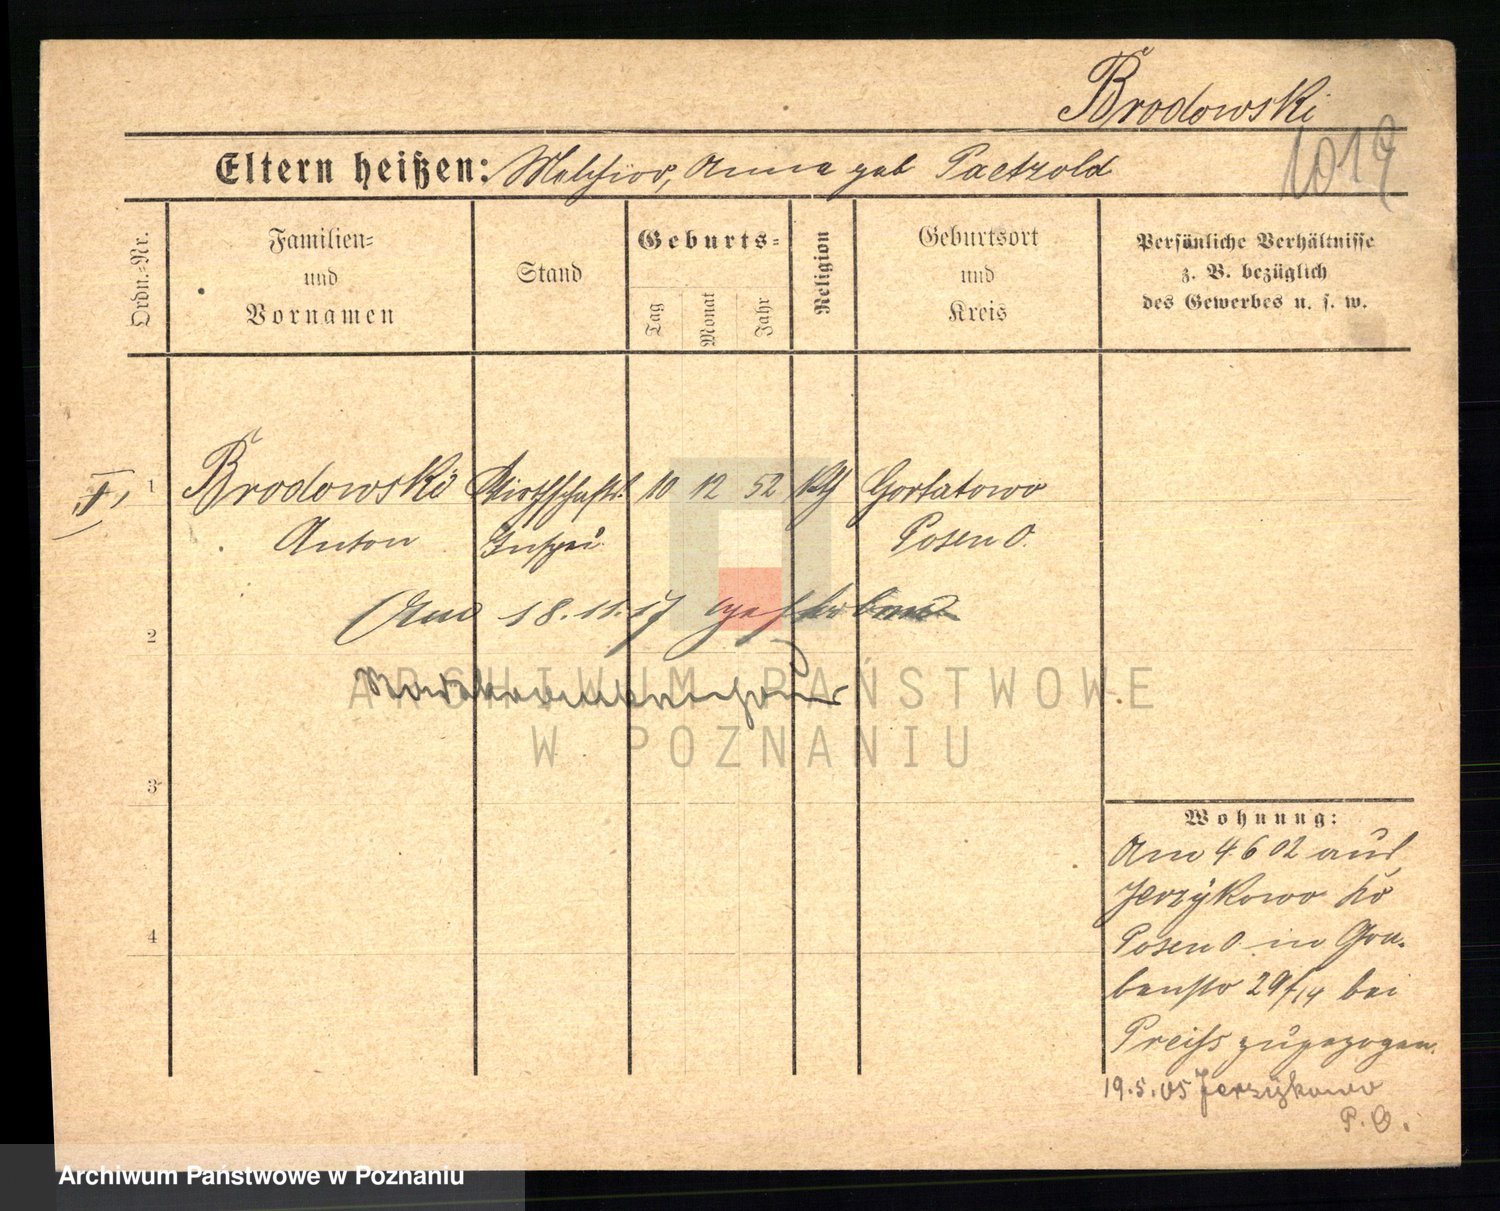 Brodowski
1019
Eltern heißen: Melchior, Anna geb Paetzold
Ordn.=Nr.
Familien=
und
Vornamen
Stand
Geburts=
Tag
Monat
Jahr
Religion
Geburtsort
und
Kreis
Persönliche Verhältnisse
z. B. bezüglich
des Gewerbes u. s. w.
1 Brodowski Wirthschafts. 10 12 52 kth Gortatowo
Anton Inspe. Posen O.
Am 18.11.17 gestorben
2
Stadtkrankenhaus
3
4
Wohnung:
Am 4 6 02 aus
Jerzykowo Kr
Posen O in Gra-
benstr 29/14 bei
Preiss zugezogen.
19.5.05 Jerzykowo
P. O.
ARCHIWUM PAŃSTWOWE
W POZNANIU
Archiwum Państwowe w Poznaniu